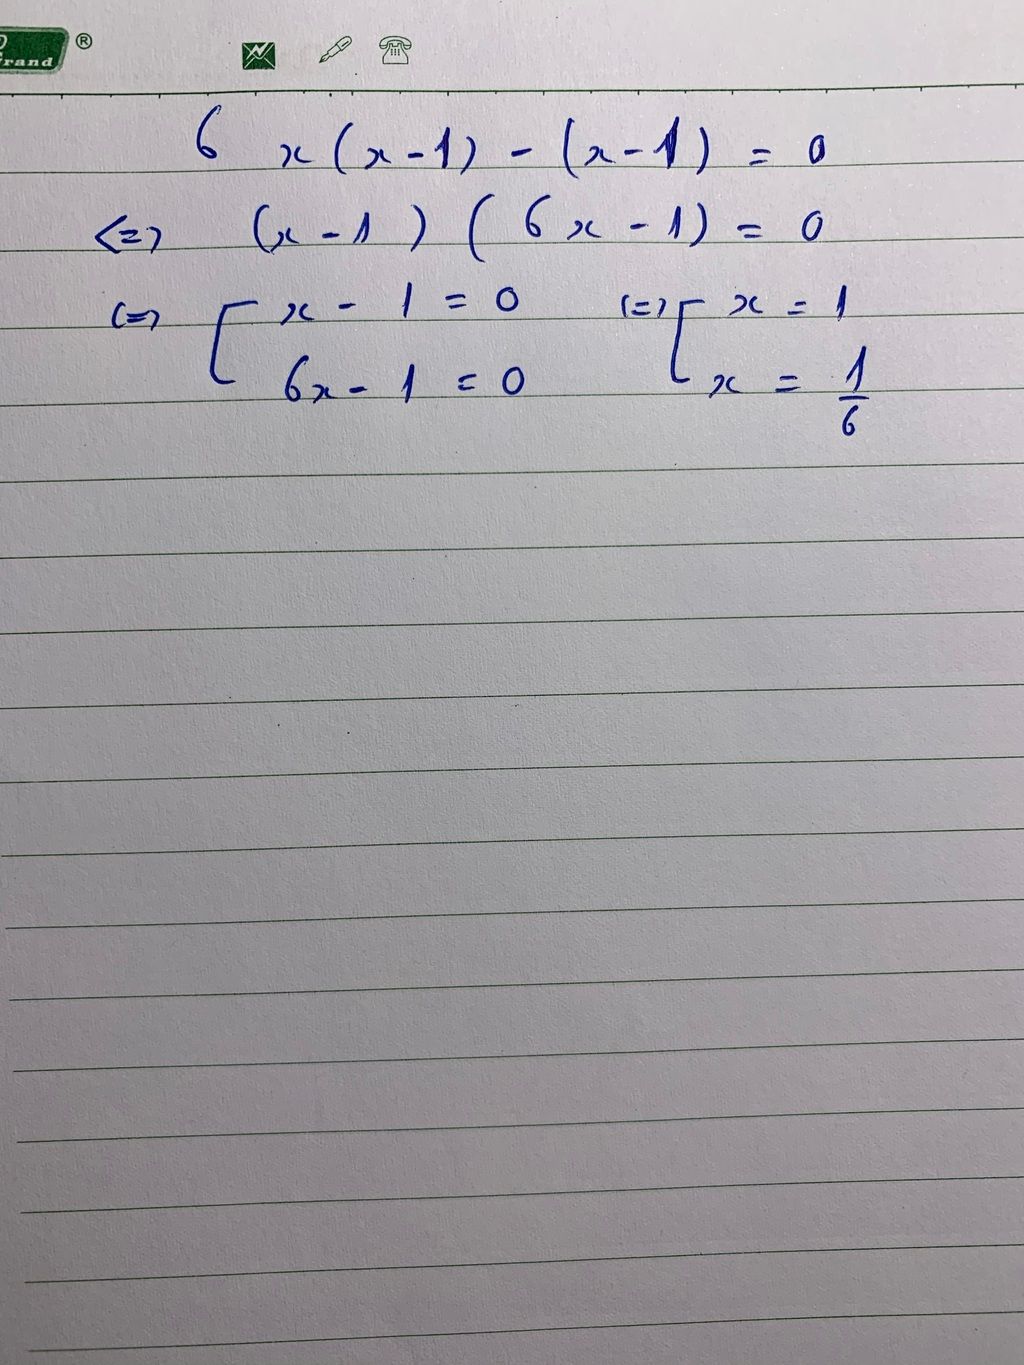 rand ®
6 x(x-1) - (x-1) = 0
<=> (x-1) (6x-1) = 0
<=> [ x - 1 = 0 <=> [ x = 1
6x - 1 = 0 x = 1/6